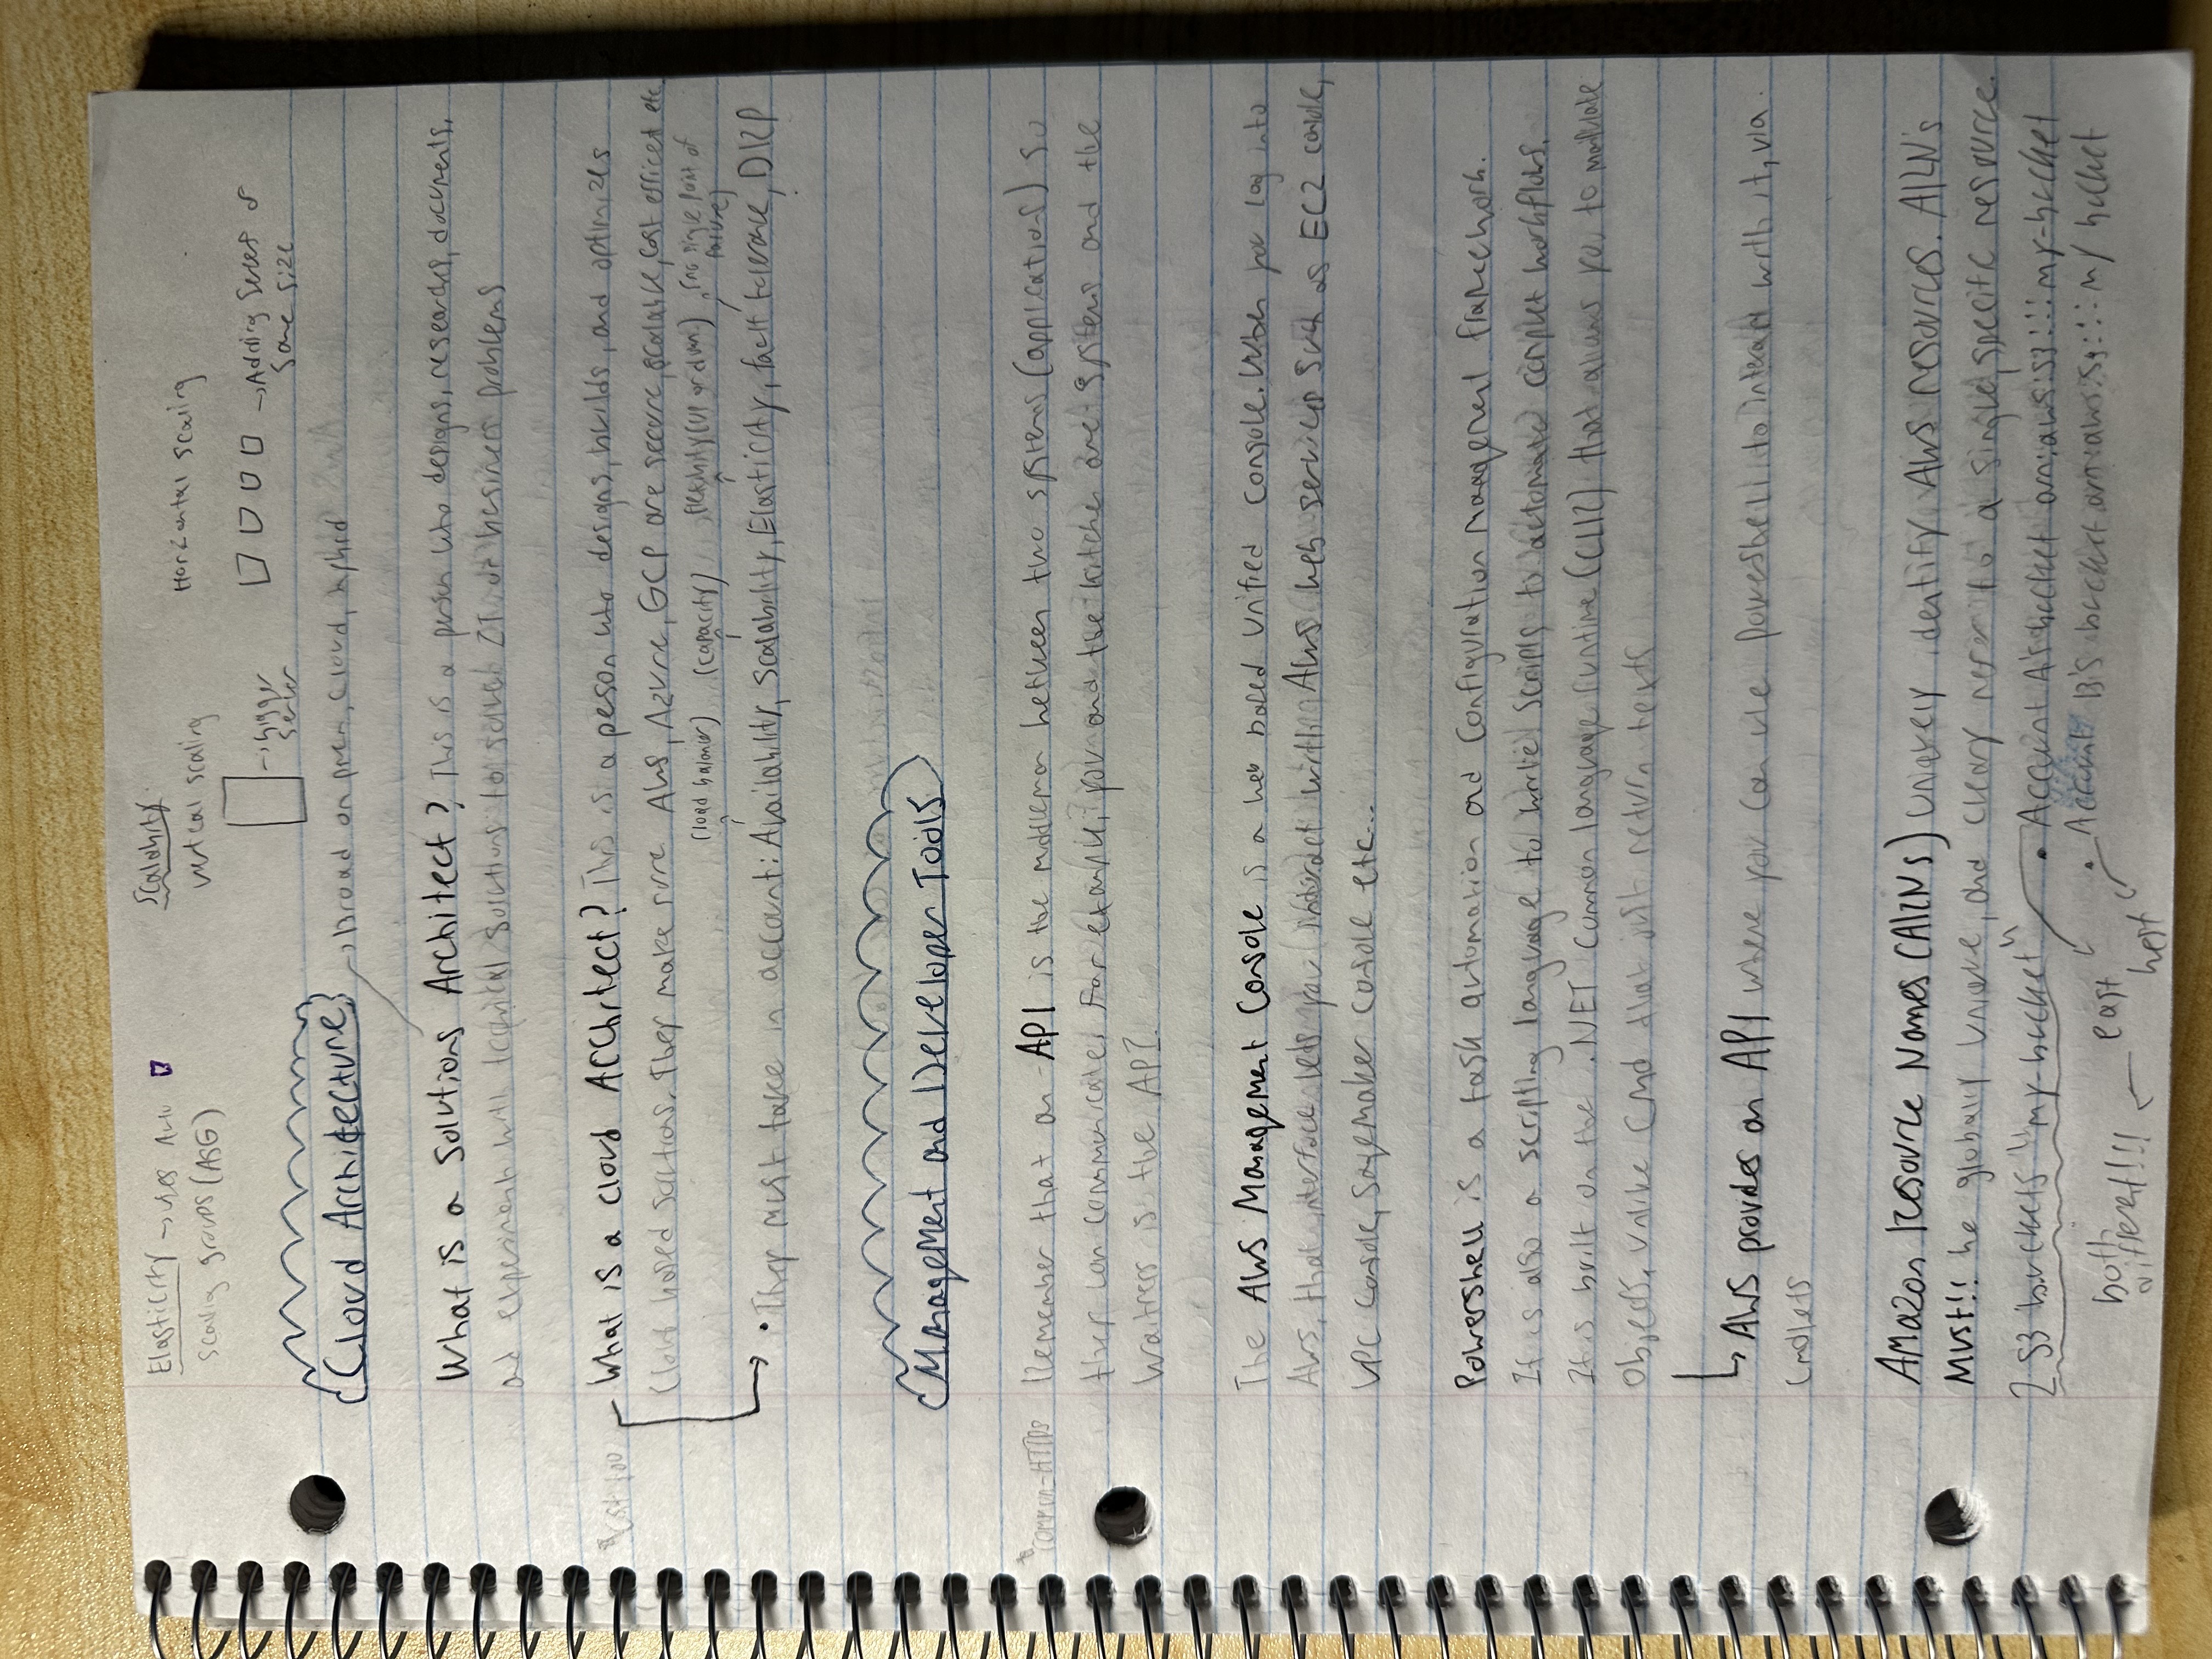 Elasticity → uses Auto
scaling groups (ASG)
Scalability
vertical scaling
Horizontal scaling
→ bigger
server
→ Adding servers of
same size
Cloud Architecture
→ Broad on prem, cloud, hybrid
What is a Solutions Architect? This is a person who designs, researches, documents,
and experiment with technical solutions to solve IT or business problems
cost too
What is a cloud Architect? This is a person who designs, builds, and optimizes
cloud based solutions. They make sure AWS, Azure, GCP are secure, scalable, cost efficent etc.
(load balancer) (capacity) flexibility (up or down) (no single point of
failure)
• They must take in account: Availability, Scalability, Elasticity, fault tolerance, DRP
Management and Developer Tools
common-HTTPS
Remember that an API is the middleman between two systems (applications) so
they can communicate. For example, you and the kitchen are systems and the
waitress is the API.
The AWS Management Console is a web based unified console. When you log into
AWS, that interface lets you interact with AWS web services such as EC2 console,
VPC console, Sagemaker console etc...
Powershell is a task automation and configuration management framework.
It is also a scripting language to write scripts to automate complex workflows.
It is built on the .NET common language runtime (CLR) that allows you to manipulate
objects, unlike cmd that just return texts
↳ AWS provides an API where you can use powershell to interact with it, via
cmdlets
Amazon Resource Names (ARNs) uniquely identify AWS resources. ARN's
Must!! be globally unique, and cleary refer to a single, specific resource.
2 S3 buckets "my-bucket"
• Account A's bucket arn:aws:s3:::my-bucket
• Account B's bucket arn:aws:s3:::my bucket
both
different!!!
← east
west